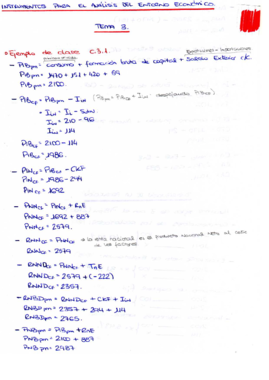 INSTRUMENTOS PARA EL ANÁLISIS DEL ENTORNO ECONÓMICO.
TEMA 3.
Ejemplo de clase C.3.1.
- PIBpm = consumo + formación bruta de capital + Saldo Exterior c/c
PIBpm = 1410 + 151 + 420 +
PIBpm = 2100.
- PIBcf = PIBpm - Iin
- Iin = Ii - Subv
Iin = 210 - 96
Iin = 114
PIBcf = 2100 - 114
PIBcf = 1986.
- PINcf = PIBcf - CKF
PINcf = 1986 - 294
PINcf = 1692
- PNNcf = PINcf + RnE
PNNcf = 1692 + 887
PNNcf = 2579.
- RNNcf = PNNcf → la renta nacional es el producto nacional neto al coste de los factores
RNNcf = 2579
- RNNDcf = PNNcf + TnE
RNNDcf = 2579 + (-222)
RNNDcf = 2357.
- RNBDpm = RNNDcf + CKF + Iin
RNBDpm = 2357 + 294 + 114
RNBDpm = 2765.
- PNBpm = PIBpm + RNE
PNBpm = 2100 + 887
PNBpm = 2987